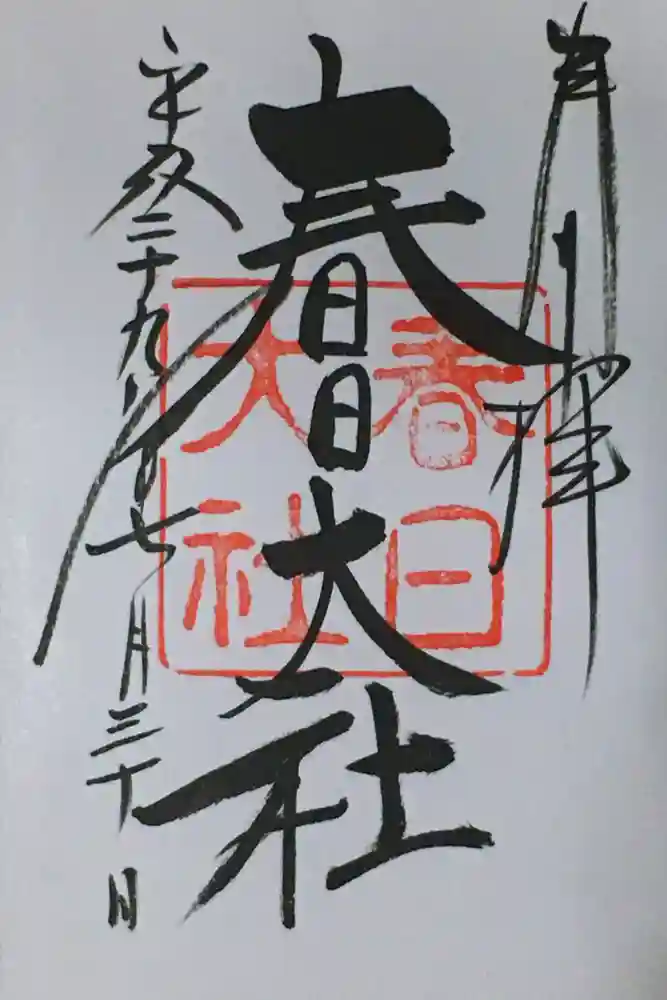 奉拝
春日大社
春日
大社
平成二十九年七月三十日